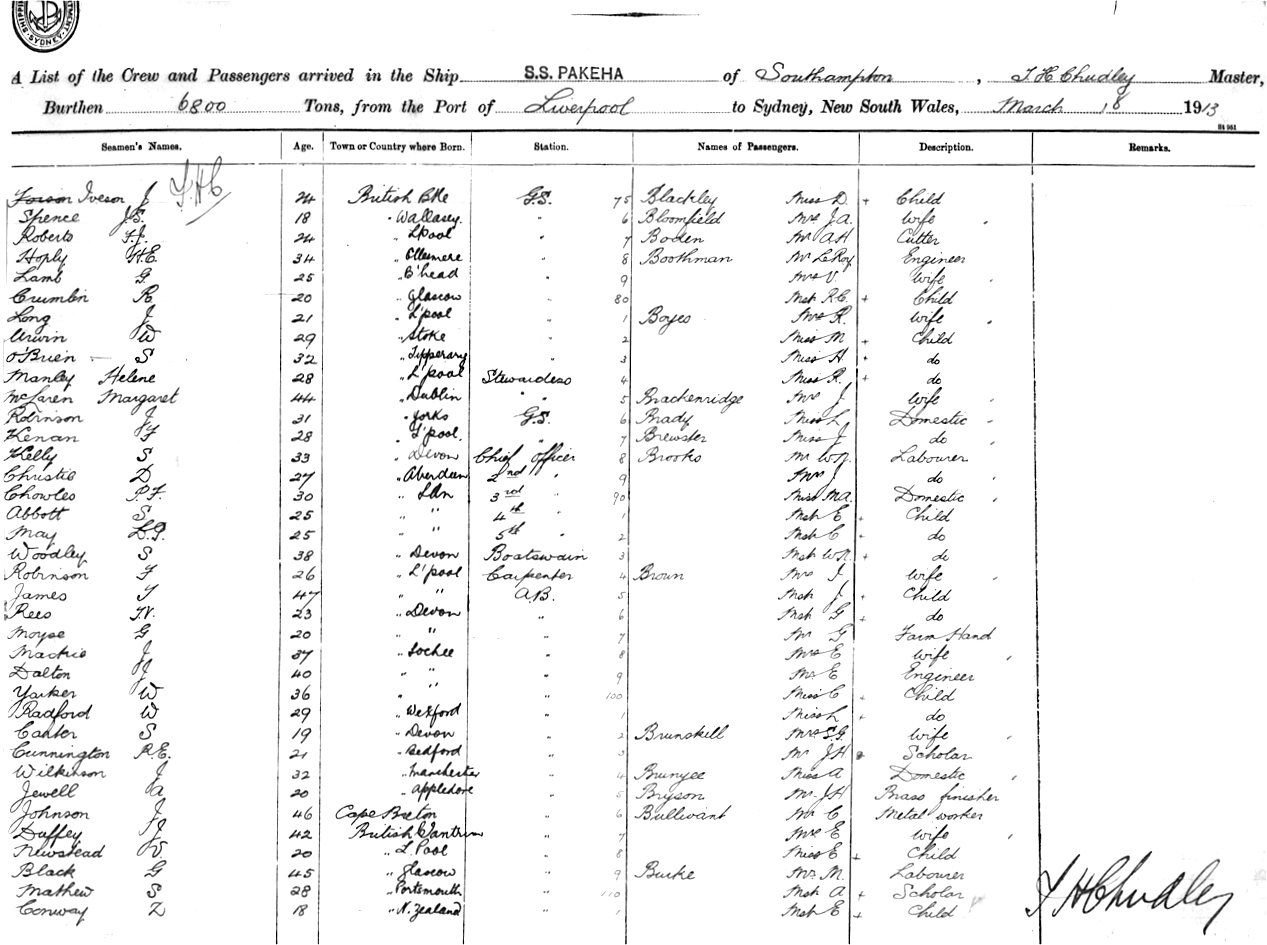 SYDNEY
A List of the Crew and Passengers arrived in the Ship S.S. PAKEHA of Southampton, T H Chudley Master,
Burthen 6800 Tons, from the Port of Liverpool to Sydney, New South Wales, March 18 1913
Seamen's Names. Age. Town or Country where Born. Station. Names of Passengers. Description. Remarks.
T.H.C
Iveson J 24 British G.S. 75 Blackley Miss D. + Child
Spence J.S. 18 " Wallasey " 6 Bloomfield Mrs J.A. Wife
Roberts 24 " L'pool " 7 Boden Mr A.H Cutter
Hoply H.E. 34 " Ellesmere " 8 Boothman Mr LeRoy Engineer
Lamb G. 25 " B'head " 9 Mrs V. Wife
Crumbin R 20 " Glascow " 80 Mstr R.C. + Child
Long J 21 " L'pool " 1 Boyes Mrs R. Wife
Urwin W 29 " Stoke " 2 Miss M + Child
O'Brien S 32 " Tipperary " 3 Miss H do
Manley Helene 28 " L'pool Stewardess 4 Miss R. + do
McLaren Margaret 44 " Dublin " 5 Brackenridge Mrs J. Wife
Robinson J 31 " Yorks G.S. 6 Brady Miss L Domestic
Kenan 28 " L'pool " 7 Brewster Miss J. do
Kelly S 33 " Devon Chief Officer 8 Brooks Mr Labourer
Christie D 27 " Aberdeen 2nd " 9 do
Chowles P.F. 30 " Ldn 3rd " 90 Miss M.A. Domestic
Abbott S. 25 " " 4th " 1 Mstr E + Child
May 25 " " 5th " 2 Mstr C + do
Woodley S 38 " Devon Boatswain 3 Mstr + do
Robinson 26 " L'pool Carpenter 4 Brown Mrs J. Wife
James 47 " " A.B. 5 Mstr J + Child
Rees 23 " Devon " 6 Mstr G + do
Moyse G 20 " " " 7 Mr Farm Hand
Mackie J 37 " Lochee " 8 Mrs E Wife
Dalton J 40 " " " 9 Mr E Engineer
Yarker W 36 " " " 100 Miss C + Child
Radford W 29 " Wexford " 1 Miss L + do
Canter S 19 " Devon " 2 Brunskill Mrs S.G. Wife
Cunnington R.E. 21 " Bedford " 3 Mr J.H Scholar
Wilkinson J 32 " Manchester " 4 Brunyee Miss A Domestic
Jewell A 20 " Appledore " 5 Bryson Mr. J.H Brass finisher
Johnson J 46 Cape Breton " 6 Bullivant Mr C Metal worker
Duffey J 42 British " 7 Mrs E Wife
Newstead 20 " L'Pool " 8 Miss E + Child
Black G 45 " Glascow " 9 Burke Mr. M. Labourer
Mathew S 28 " Portsmouth " 110 Mstr A + Scholar
Conway Z 18 " N. Zealand " 1 Mstr E + Child
T H Chudley